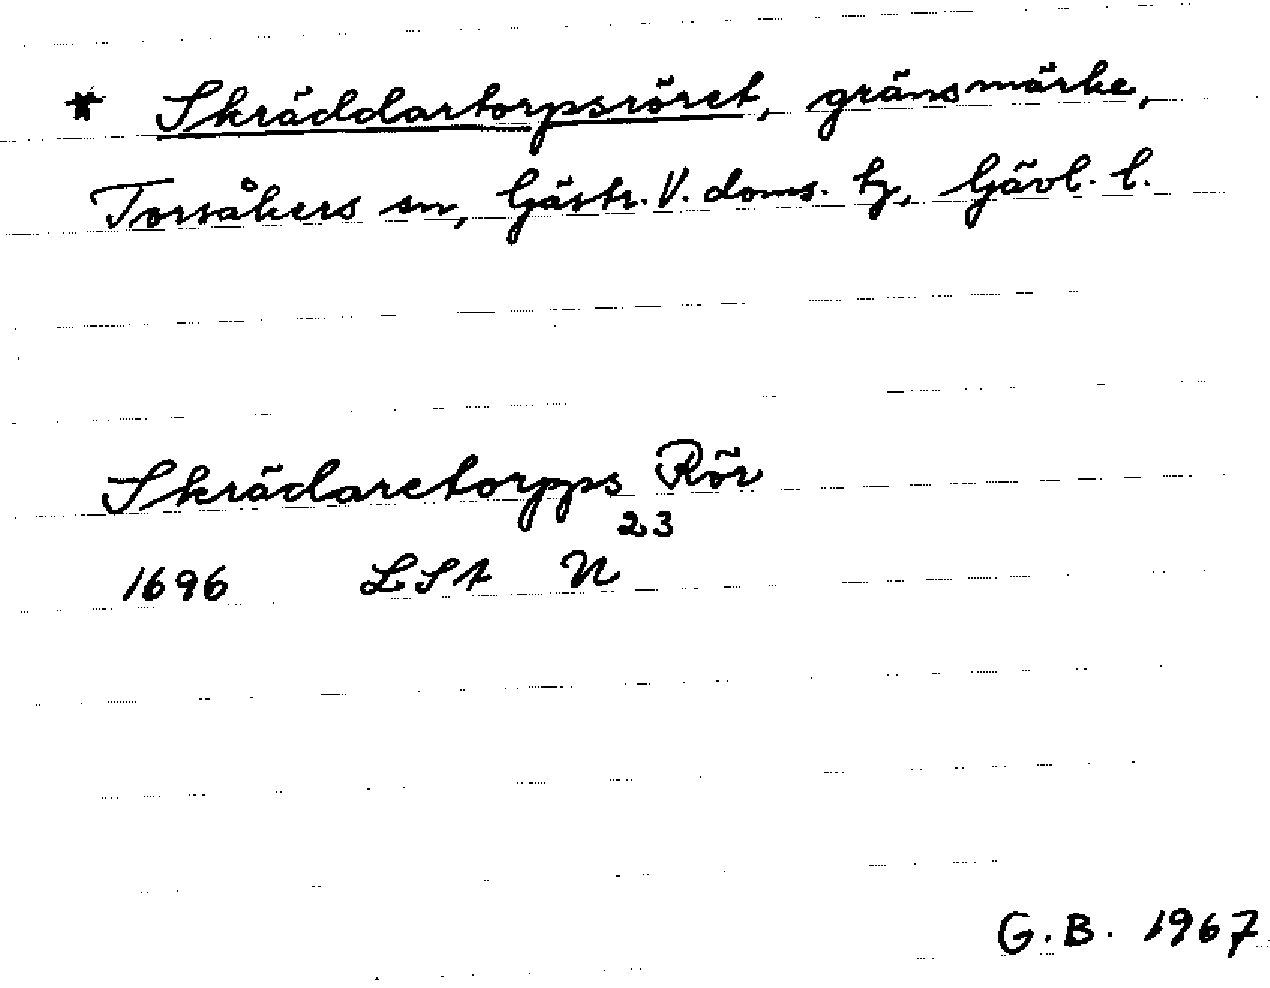 * Skräddartorpsröret, gränsmärke,
Torsåkers sn, Gästr. V. doms. tg, Gävl. l.
Skrädaretorpps Rör
1696 LSt N²³
G.B. 1967